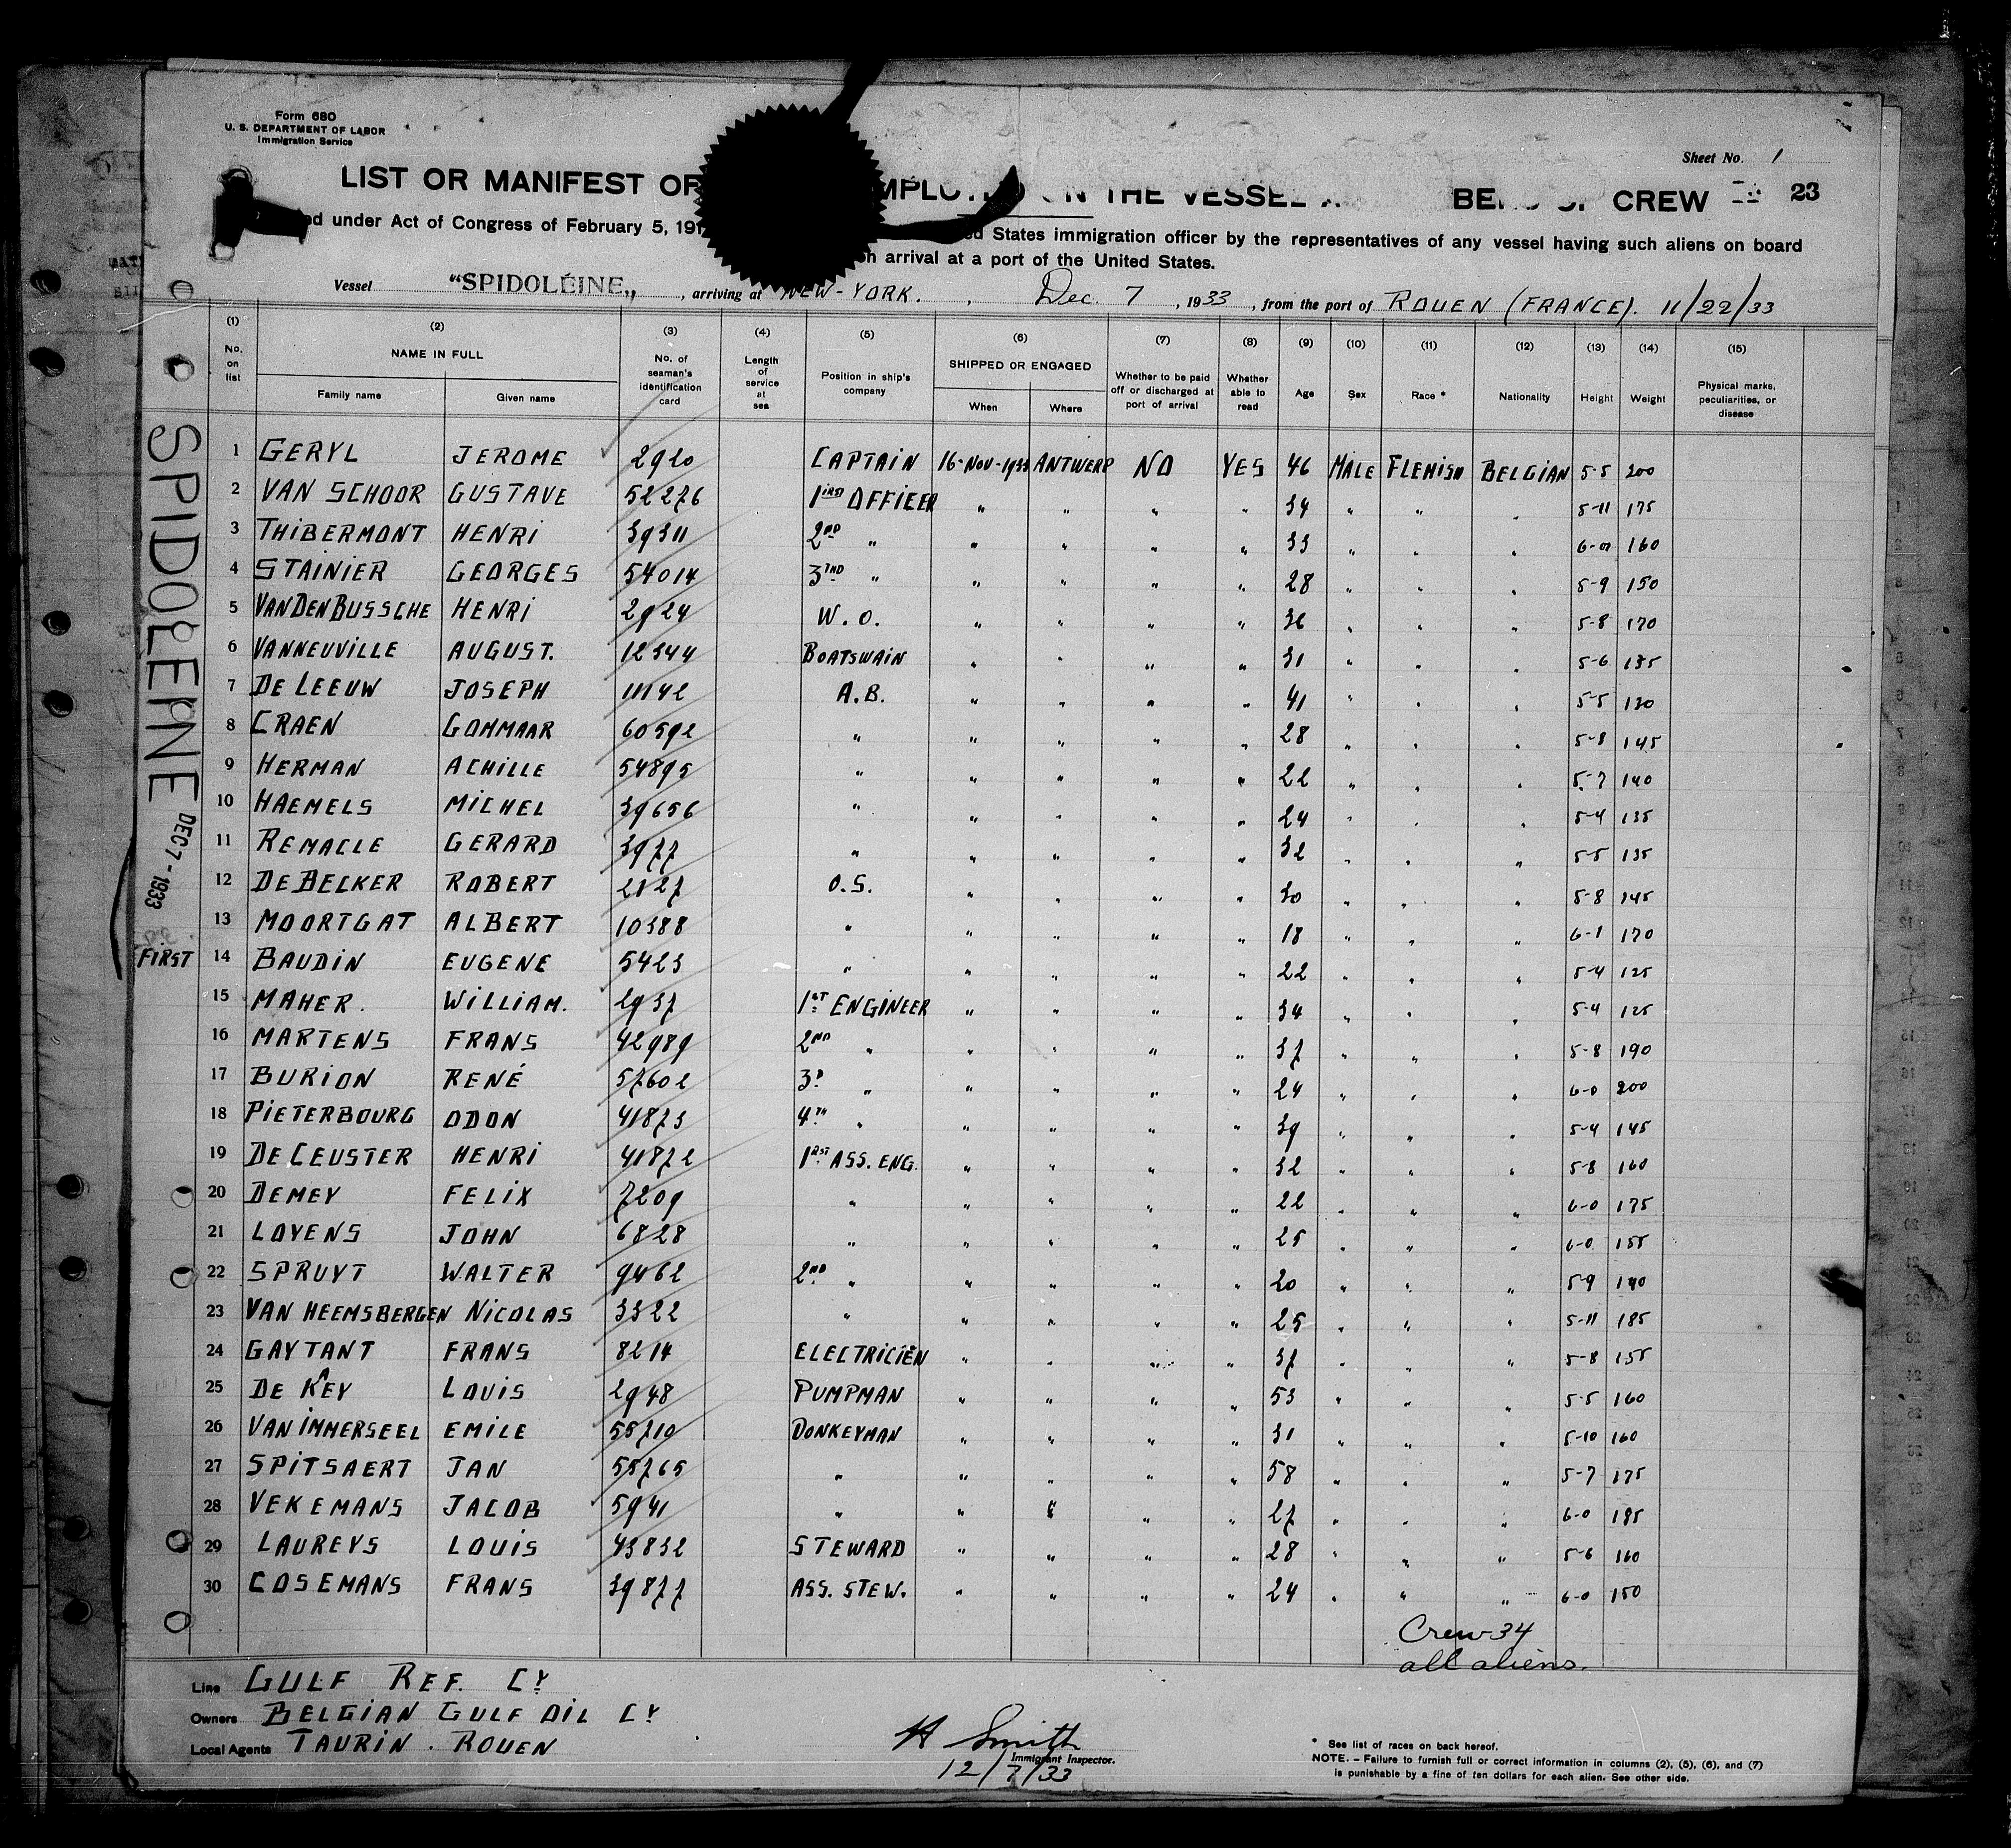 Form 680
U. S. DEPARTMENT OF LABOR
Immigration Service
Sheet No. 1
LIST OR MANIFEST OF ON THE VESSEL CREW 23
under Act of Congress of February 5, States immigration officer by the representatives of any vessel having such aliens on board
arrival at a port of the United States.
Vessel "SPIDOLÉINE„ , arriving at NEW-YORK. , Dec. 7 , 1933 , from the port of ROUEN (FRANCE). 11/22/33
(1) (2) (3) (4) (5) (6) (7) (8) (9) (10) (11) (12) (13) (14) (15)
No. on list NAME IN FULL Family name Given name No. of seaman's identification card Length of service at sea Position in ship's company SHIPPED OR ENGAGED When Where Whether to be paid off or discharged at port of arrival Whether able to read Age Sex Race * Nationality Height Weight Physical marks, peculiarities, or disease
1 GERYL JEROME 2920 CAPTAIN 16-NOV-1933 ANTWERP NO YES 46 MALE FLEMISH BELGIAN 5-5 200
2 VAN SCHOOR GUSTAVE 52276 1IRST OFFICER " " " " 34 " " " 5-11 175
3 THIBERMONT HENRI 39311 2ND " " " " " 33 " " " 6-0 160
4 STAINIER GEORGES 54014 3TRD " " " " " 28 " " " 5-9 150
5 VANDENBUSSCHE HENRI 2924 W. O. " " " " 36 " " " 5-8 170
6 VANNEUVILLE AUGUST. 12344 BOATSWAIN " " " " 31 " " " 5-6 135
7 DE LEEUW JOSEPH 11142 A.B. " " " " 41 " " " 5-5 130
8 CRAEN GOMMAAR 60592 " " " " " 28 " " " 5-8 145
9 HERMAN ACHILLE 54895 " " " " " 22 " " " 5-7 140
10 HAEMELS MICHEL 39656 " " " " " 24 " " " 5-4 135
11 REMACLE GERARD 3977 " " " " " 32 " " " 5-5 135
12 DEBECKER ROBERT 2127 O.S. " " " " 30 " " " 5-8 145
13 MOORTGAT ALBERT 10388 " " " " " 18 " " " 6-1 170
FIRST 14 BAUDIN EUGENE 5423 " " " " " 22 " " " 5-4 125
15 MAHER. WILLIAM. 2937 1ST ENGINEER " " " " 34 " " " 5-4 125
16 MARTENS FRANS 42989 2ND " " " " " 37 " " " 5-8 190
17 BURION RENÉ 57602 3D " " " " " 24 " " " 6-0 200
18 PIETERBOURG ODON 41873 4TH " " " " " 39 " " " 5-4 145
19 DECEUSTER HENRI 41872 1RST ASS. ENG. " " " " 32 " " " 5-8 160
20 DEMEY FELIX 7209 " " " " " 22 " " " 6-0 175
21 LOYENS JOHN 6828 " " " " " 25 " " " 6-0 155
22 SPRUYT WALTER 9462 2ND " " " " " 20 " " " 5-9 140
23 VAN HEEMSBERGEN NICOLAS 3322 " " " " " 25 " " " 5-11 185
24 GAYTANT FRANS 8214 ELECTRICIEN " " " " 37 " " " 5-8 155
25 DE KEY LOUIS 2948 PUMPMAN " " " " 53 " " " 5-5 160
26 VAN IMMERSEEL EMILE 55710 DONKEYMAN " " " " 31 " " " 5-10 160
27 SPITSAERT JAN 55765 " " " " " 58 " " " 5-7 175
28 VEKEMANS JACOB 5941 " " " " " 27 " " " 6-0 195
29 LAUREYS LOUIS 43832 STEWARD " " " " 28 " " " 5-6 160
30 COSEMANS FRANS 39877 ASS. STEW. " " " " 24 " " " 6-0 150
Crew 34
all aliens.
Line GULF REF. CY
Owners BELGIAN GULF OIL CY
Local Agents TAURIN. ROUEN
H Smith
Immigrant Inspector.
12/7/33
* See list of races on back hereof.
NOTE. – Failure to furnish full or correct information in columns (2), (5), (6), and (7)
is punishable by a fine of ten dollars for each alien. See other side.
SPIDOLEINE DEC 7 - 1933